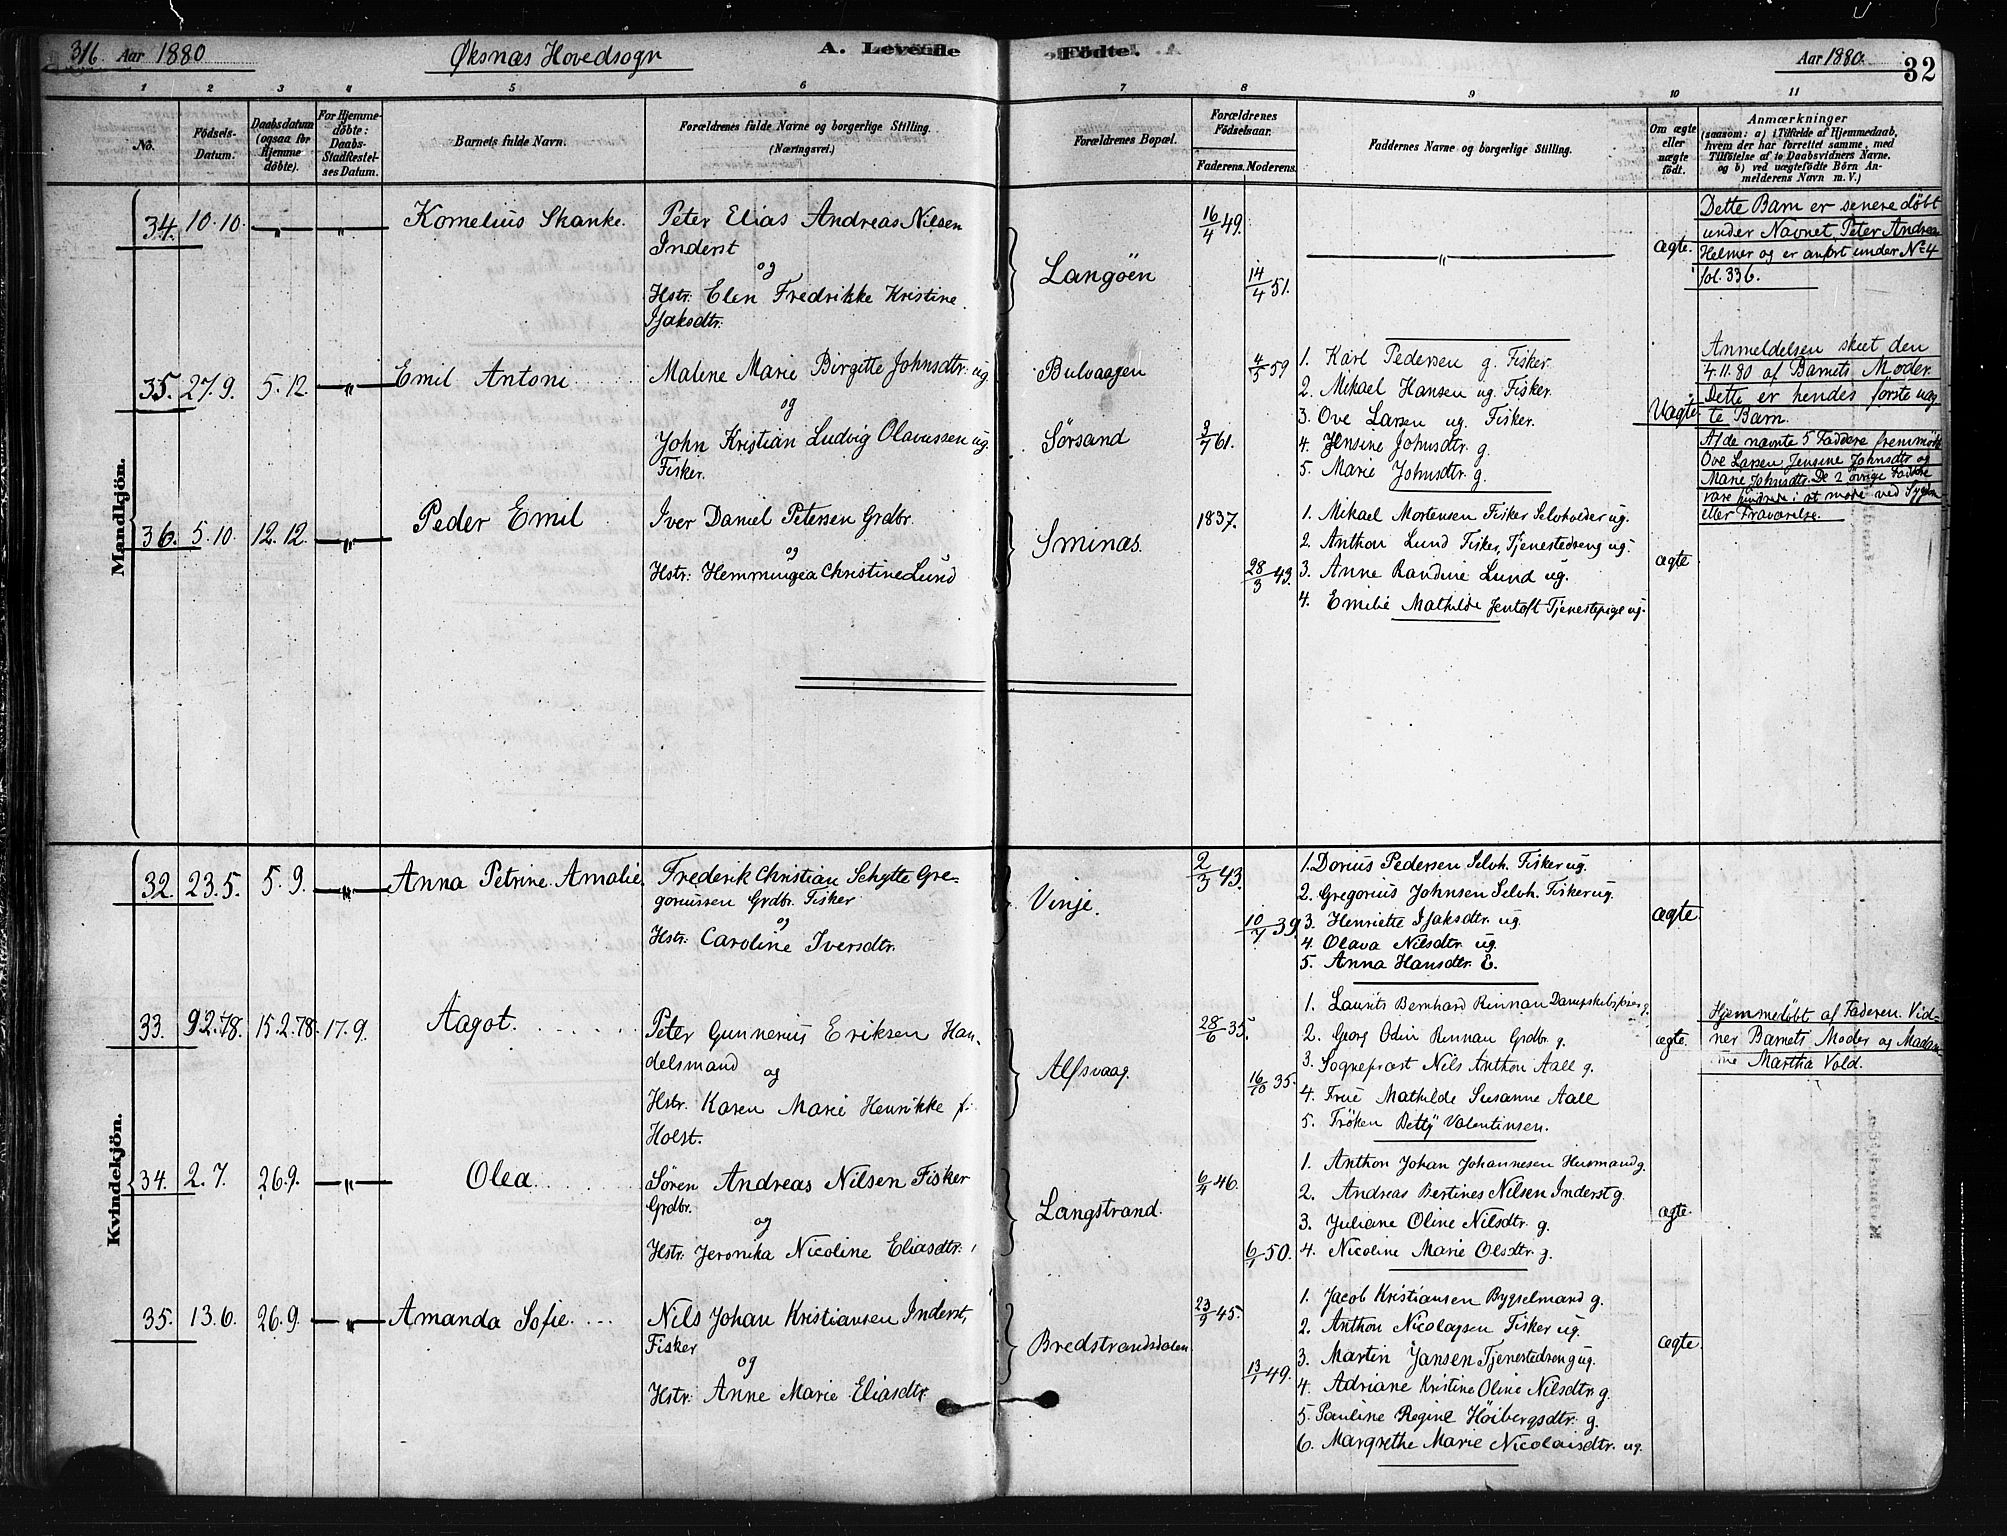 316 Aar 1880 Øksnæs Hovedsogn A. Levende
Födte. Aar 1880. 32
1 2 3 4 5 6 7 8 9 10 11
No.
Födsels-Datum.
Daabsdatum (ogsaa for Hjemme döbte).
For Hjemme-döbte: Daabs-Stadfæstel-ses Datum.
Barnets fulde Navn.
Forældrenes fulde Navne og borgerlige Stilling. (Næringsvei.)
Forældrenes Bopæl.
Forældrenes Födselsaar.
Faderens. Moderens.
Faddernes Navne og borgerlige Stilling.
Om ægte eller uægte födt.
Anmærkninger
(saasom: a) i Tilfælde af Hjemmedaab,
hvem der har forrettet samme, med
Tilföielse af to Daabsvidners Navne.
og b) ved uægtefödte Börn An-
melderens Navn m. V.)
Mandkjön.
34. 10.10. — " — " Kornelius Skanke.
Peter Elias Andreas Nilsen
Inderst
og
Hstr: Elen Fredrikke Kristine
Isaksdtr:
Langøen
16/4 49.
14/4 51.
"
ægte.
Dette Barn er senere døbt
under Navnet Peter Andrea
Helmer og er anført under No 4
fol. 336.
35. 27.9. 5.12. — " — Emil Antoni
Malene Marie Birgitte Johnsdtr: ug.
og
John Kristian Ludvig Olavussen ug.
Fisker.
Bulvaagen
Sørsand
4/3 59
3/7 61.
1. Karl Pedersen g. Fisker.
2. Mikael Hansen ug. Fisker.
3. Ove Larsen ug. Fisker.
4. Jensine Johnsdtr. g.
5. Marie Johnsdtr. g.
Uægte
Anmeldelsen skeet den
4.11.80 af Barnets Moder.
Dette er hendes første uæg
te Barn.
Af de nævnte 5 Faddere fremmødte
Ove Larsen Jensine Johnsdtr og
Marie Johnsdtr. De 2 øvrige Faddere
vare hindrede i at møde ved Sygdom
eller Fraværelse.
36. 5.10. 12.12. — " — Peder Emil
Iver Daniel Petersen Grdbr.
og
Hstr: Hemmingea Christine Lund
Sminæs.
1837.
28/3 43.
1. Mikael Mortensen Fisker Selvholder ug.
2. Anthon Lund Fisker, Tjenestedreng ug.
3. Anne Randine Lund ug.
4. Emilie Mathilde Jentoft Tjenestepige ug.
ægte
Kvindekjön.
32. 23.5. 5.9. — " — Anna Petrine Amalie.
Frederik Christian Schytte Gre-
goriussen Grdbr. Fisker
og
Hstr: Caroline Iversdtr.
Vinje.
2/3 43.
10/7 39.
1. Dorius Pedersen Selvh. Fisker ug.
2. Gregorius Johnsen Selvh. Fisker ug.
3. Henriette Isaksdtr. ug.
4. Olava Nilsdtr. ug.
5. Anna Hansdtr. E.
ægte
33. 9.2.78. 15.2.78. 17.9. Aagot.
Peter Gunnerius Eriksen Han-
delsmand og
Hstr: Karen Marie Henrikke f:
Holst.
Alfsvaag.
28/6 35.
16/10 35.
1. Laurits Bernhard Rinnan g.
2. Georg Odin Rinnan Grdbr. g.
3. Sognepræst Nils Anthon Aall g.
4. Frue Mathilde Susanne Aall
5. Frøken Betty Valentinsen.
ægte
Hjemmedøbt af Faderen. Vid-
ner Barnets Moder og Madam
me Martha Vold.
34. 2.7. 26.9. — " — Olea
Søren Andreas Nilsen Fisker
Grdbr.
og
Hstr: Jeronika Nicoline Eliasdtr:
Langstrand.
46.
50.
1. Anthon Johan Johannesen Husmand g.
2. Andreas Bertines Nilsen Inderst g.
3. Juliane Oline Nilsdtr. g.
4. Nicoline Marie Olsdtr. g.
ægte.
35. 13.6. 26.9. — " — Amanda Sofie.
Nils Johan Kristiansen Inderst,
Fisker
og
Hstr: Anne Marie Eliasdtr.
Bredstrandsdalen
45.
49.
1. Jacob Kristiansen Bygselmand g.
2. Anthon Nicolaysen Fisker ug.
3. Martin Jansen Tjenestedreng ug.
4. Adriane Kristine Oline Nilsdtr. g.
5. Pauline Regine Höibergsdtr: g.
6. Margrethe Marie Nicolaisdtr. ug.
ægte